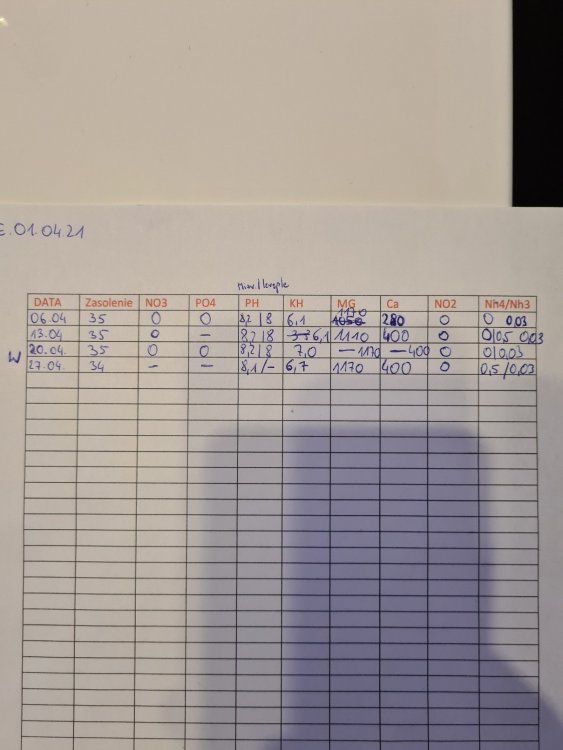 E.01.04.21
DATA Zasolenie NO3 PO4 PH KH MG Ca NO2 Nh4/Nh3
06.04 35 0 0 8,2 | 8 6,1 1050 280 0 0 0,03
13.04 35 0 - 8,2 | 8 6,1 1110 400 0 0,03
W 20.04. 35 0 0 8,2 | 8 7,0 -1170 -400 0 0 | 0,03
27.04. 34 - - 8,1 / - 6,7 1170 400 0 0,5 / 0,03